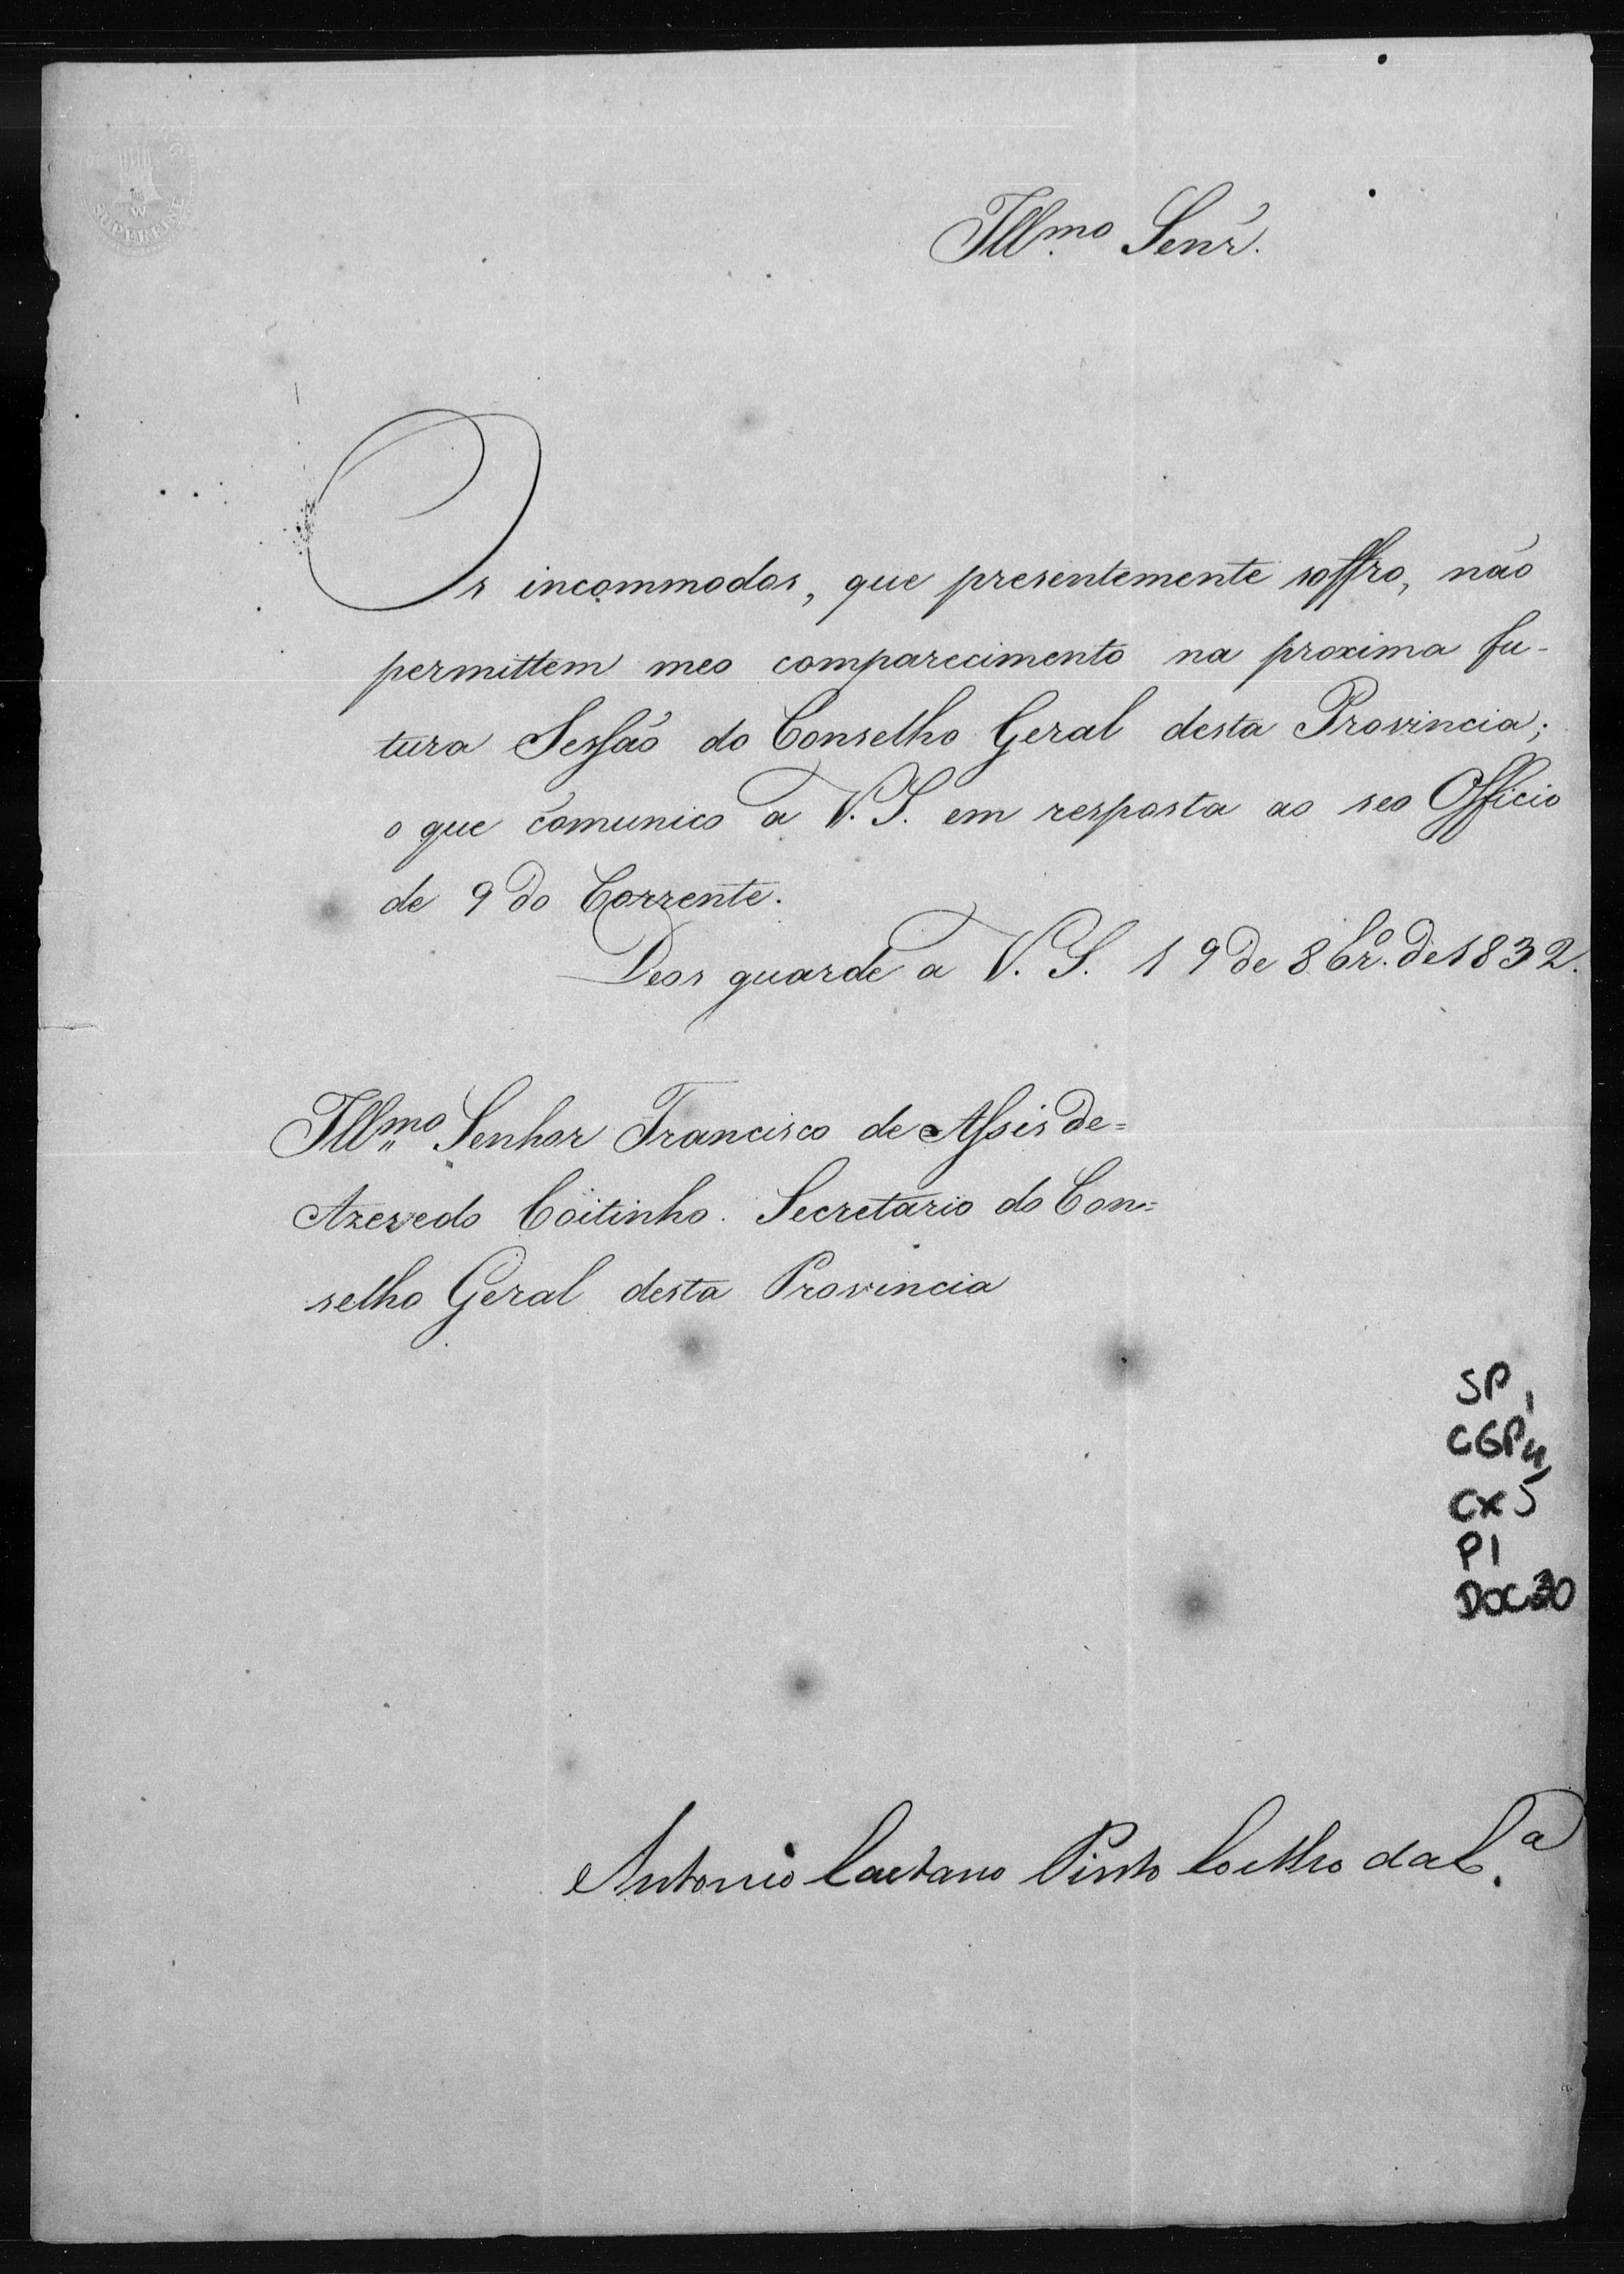 SUPERFINE
Illmo. Senr.
Os incommodos, que presentemente soffro, não
permittem meo comparecimento na proxima fu-
tura Sessão do Conselho Geral desta Provincia;
o que comunico a V. S. em resposta ao seo Officio
de 9 do Corrente.
Deos guarde a V. S. 19 de 8br.o de 1832.
Illmo. Senhor Francisco de Assis de=
Azevedo Coitinho. Secretario do Con=
selho Geral desta Provincia
SP,
CGP4,
CX5
P1
DOC30
Antonio Caetano Pinto Coelho da C.a